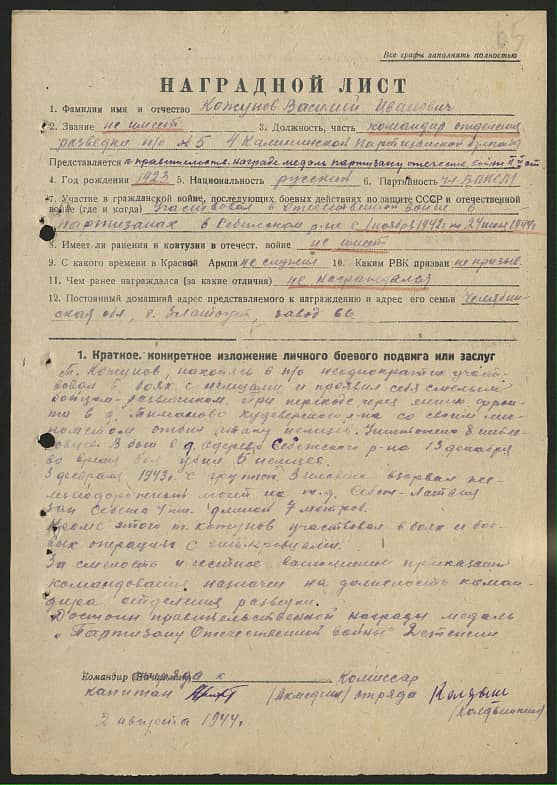 65
Все графы заполнять полностью
НАГРАДНОЙ ЛИСТ
1. Фамилия имя и отчество Кокунов Василий Иванович
2. Звание не имеет 3. Должность, часть командир отделения
разведки п/о №5 4 Калининской Партизанской бригады
Представляется к правительств. награде медаль партизану отечеств. войны II ст
4. Год рождения 1923 5. Национальность русский 6. Партийность чл. ВЛКСМ
7. Участие в гражданской войне, последующих боевых действиях по защите СССР и отечественной
войне (где и когда) Участвовал в Отечественной войне в
партизанах в Себежском р-не с 1 ноября 1942 г. по 24 июля 1944 г.
8. Имеет ли ранения и контузии в отечест. войне не имеет
9. С какого времени в Красной Армии не служил 10. Каким РВК призван не призыв.
11. Чем ранее награждался (за какие отличия) не награждался
12. Постоянный домашний адрес представляемого к награждению и адрес его семьи Челябин-
ская обл., г. Златоуст, завод 66
1. Краткое, конкретное изложение личного боевого подвига или заслуг
Т. Кокунов, находясь в п/о неоднократно участ-
вовал в боях с немцами и проявил себя смелым
бойцом-разведчиком. При переходе через линию фрон-
та в д. Тиманово Кудеверского р-на со своим
отбил атаку немцев. Уничтожено 8
В бою в д. Себежского р-на 13 декабря
во время боя убил 5 немцев.
3 февраля 1943 г. с группой взорвал же-
лезнодорожный мост на ж.д. Себеж-Латвия
зап Себежа длиной 7 метров.
Кроме этого т. Кокунов участвовал в боях и бое-
вых операциях с гитлеровцами.
За смелость и честное выполнение приказания
командования назначен на должность коман-
дира отделения разведки.
Достоин правительственной награды медаль
„Партизану Отечественной войны" 2 степени
Командир отряда Комиссар
капитан (Ахмедчин) отряда Колдыш
2 августа 1944 г.